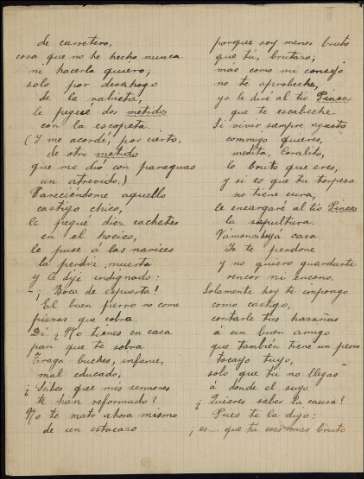 de carretero,
cosa que no he hecho nunca
ni hacerla quiero;
solo por desahogo
de la rabieta,
le pegué dos metidos
con la escopeta.
(Y me acordé, por cierto,
de otro metido
que me dió con paraguas
un atrevido.)
Pareciéndome aquello
castigo chico,
le pegué diez cachetes
en el hocico,
le puse á las narices
la perdiz muerta
y le dije indignado:
- ¡ Boca de espuerta!
El buen perro no come
piezas que cobra
Di ¿ No tienes en casa
pan que te sobra
Traga buches, infame,
mal educado,
¿ Sabes que mis sermones
te han reformado?
No te mato ahora mismo
de un estacazo
porque soy menos bruto
que tú, brutazo;
mas como mi consejo
no te aproveche,
yo le diré al tío
que te escabeche.
Si vivir siempre
conmigo quieres,
medita, Coralito,
lo bruto que eres,
y si es que tu torpeza
no tiene cura,
le encargaré al tío
la sepultura.
Vámonos á casa
Yo te perdono
y no quiero guardarte
rencor ni encono.
Solamente hoy te impongo
como castigo,
contarle tus hazañas
á un buen amigo
que también tiene un perro
tocayo tuyo,
solo que tú no llegas
á donde el suyo
¿ Quieres saber la causa?
Pues te la digo:
¡ es... que tú eres más bruto